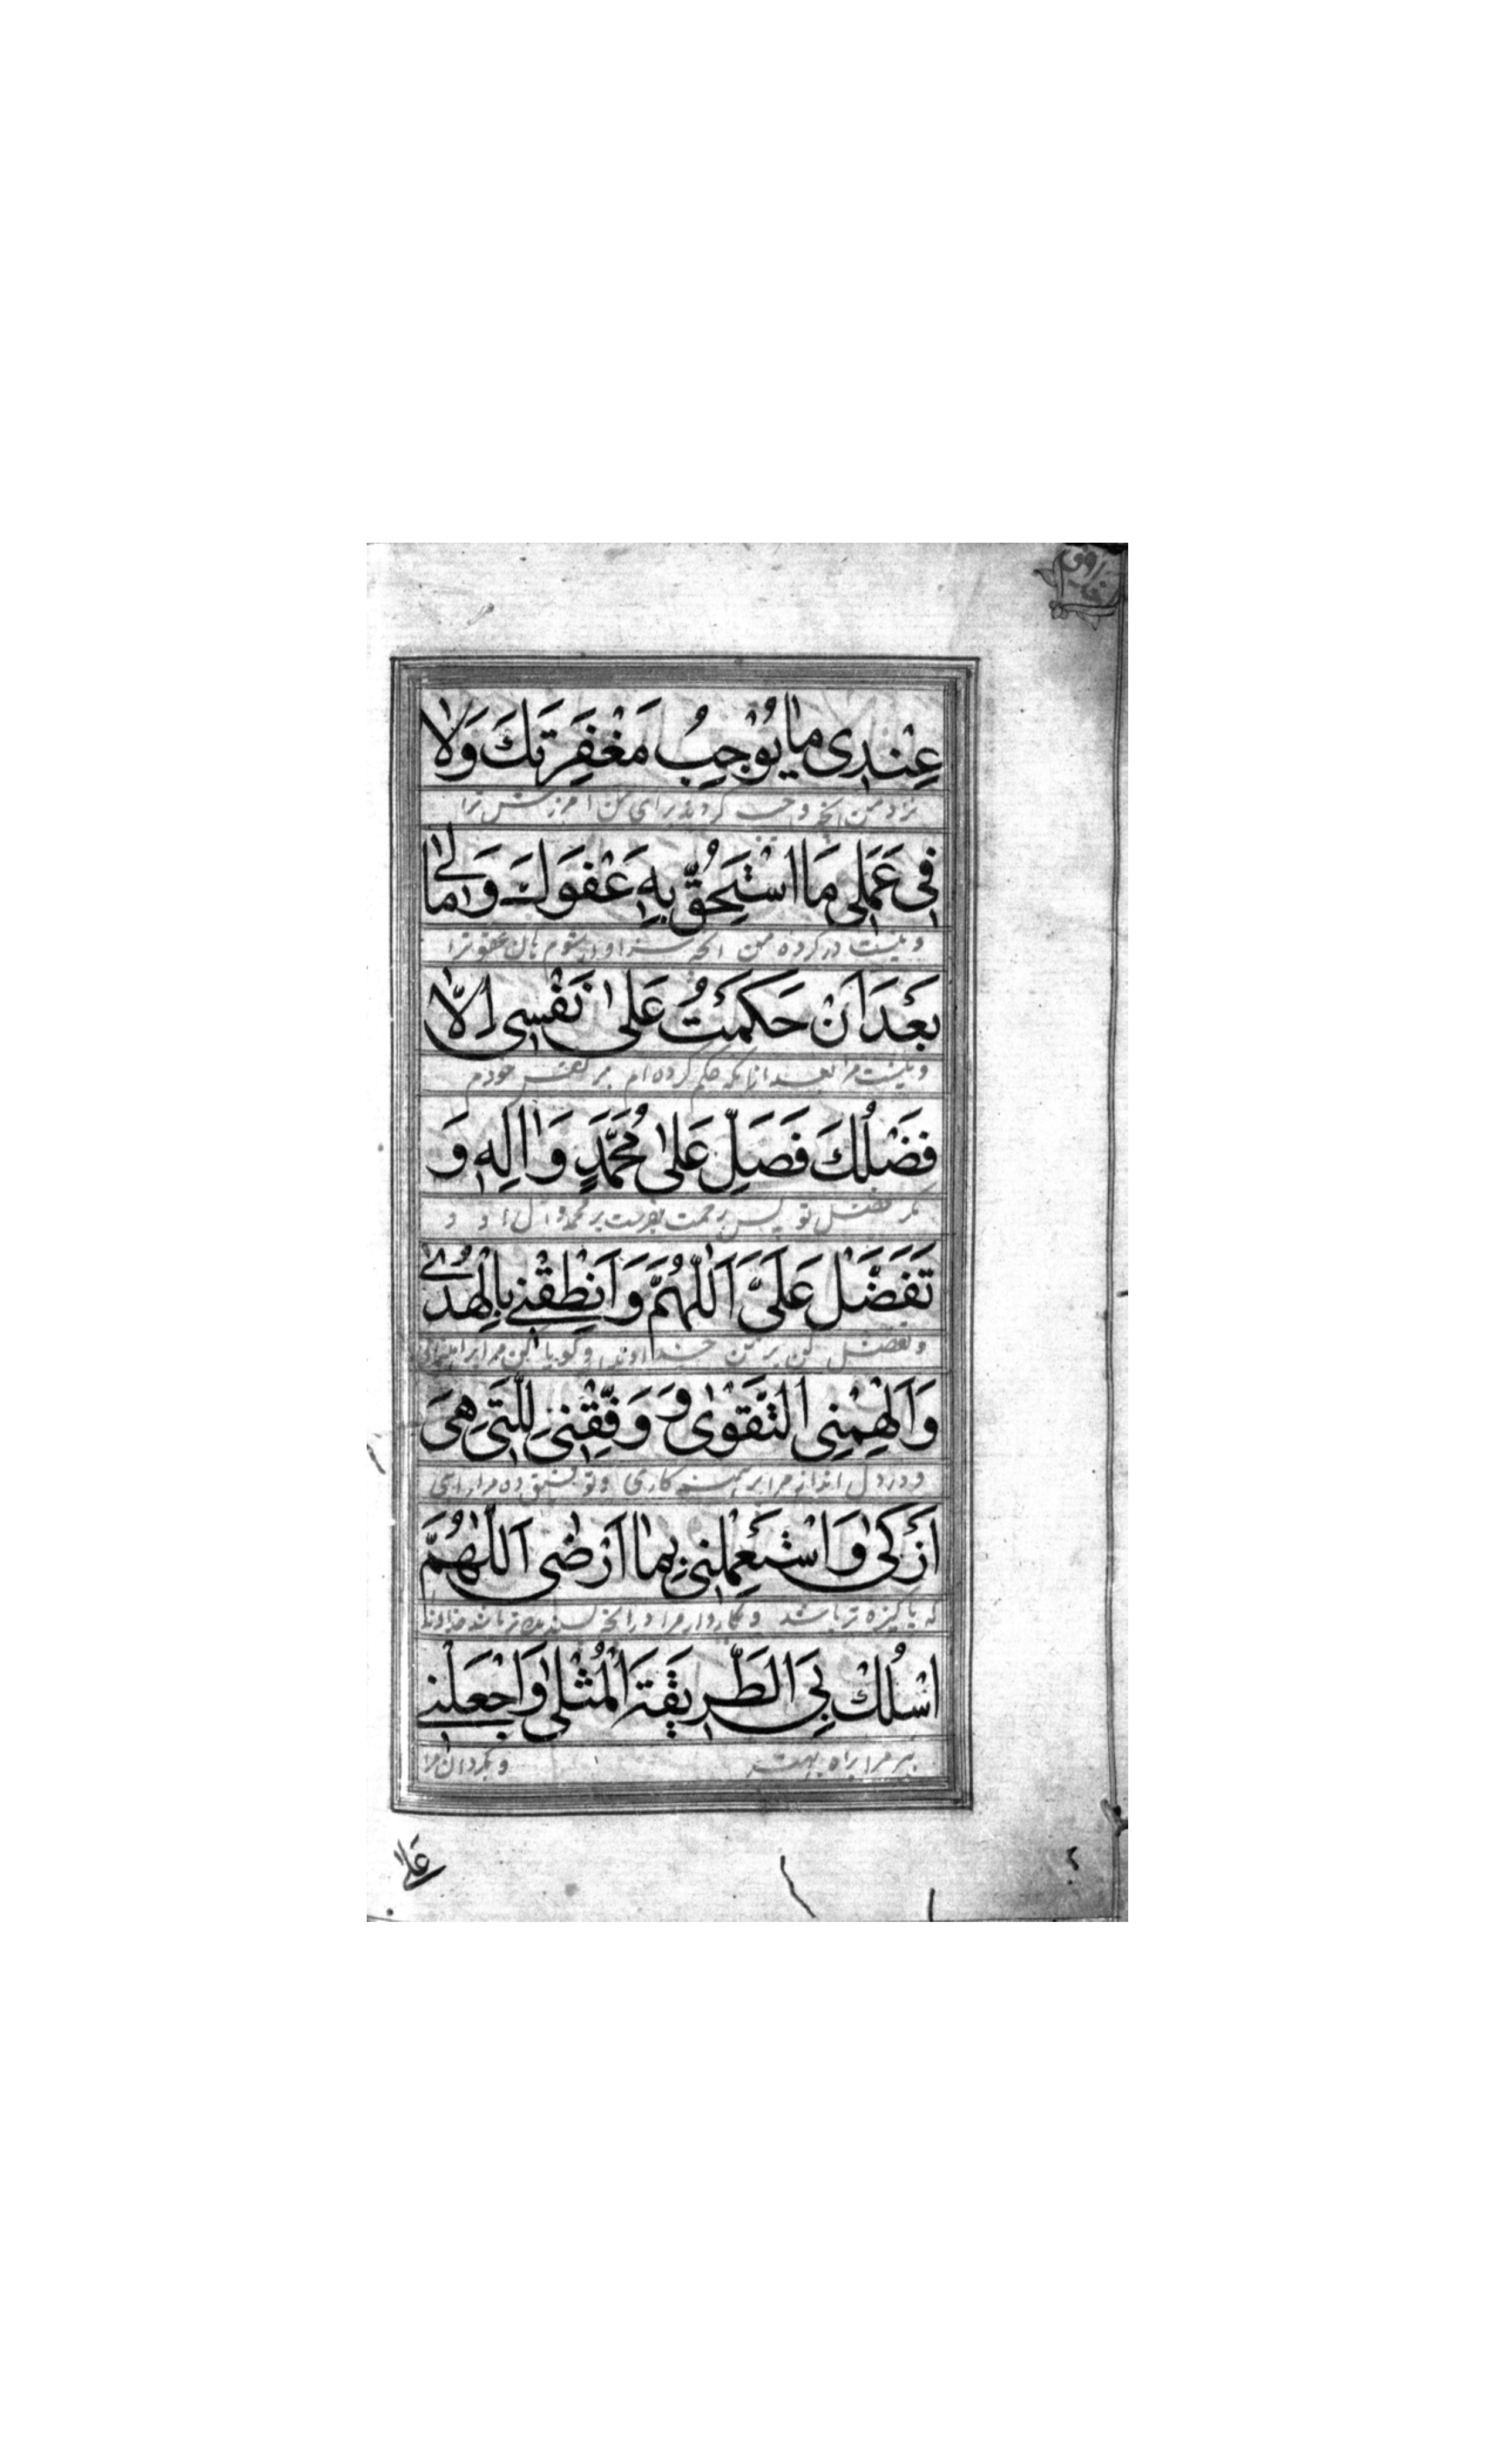 عِنْدِی مٰا یُوْجِبُ مَغْفِرَتَكَ وَلاٰ
نزد من آنچه واجب گرداند برای من آمرزش ترا
فِی عَمَلِی مَا اَسْتَحِقُّ بِهِ عَفْوَكَ وَمٰالِیٰ
و نیست در کرده من آنچه سزاوار شوم بآن عفو ترا
بَعْدَ اَنْ حَكَمْتُ عَلیٰ نَفْسِی اِلاّٰ
و نیست مرا بعد از آنکه حکم کرده‌ام بر نفس خودم
فَضْلُكَ فَصَلِّ عَلیٰ مُحَمَّدٍ وَاٰلِهِ وَ
مگر فضل تو پس رحمت بفرست بر محمد و آل او و
تَفَضَّلْ عَلَیَّ اَللّٰهُمَّ وَاَنْطِقْنِی بِالْهُدیٰ
و تفضل کن بر من خداوندا و گویا کن مرا براه
وَاَلْهِمْنِی التَّقْوٰی وَ وَفِّقْنِی لِلَّتِی هِیَ
و در دل انداز مرا پرهیزکاری و توفیق ده مرا
اَزْكیٰ وَاسْتَعْمِلْنِی بِمٰا اَرْضٰی اَللّٰهُمَّ
که پاکیزه تر باشد و بکار دار مرا در آنچه پسندیده تر باشد خداوندا
اسْلُكْ بِیَ الطَّرِیقَةَ الْمُثْلیٰ وَاجْعَلْنِی
ببر مرا براه بهتر و بگردان مرا
عَلیٰ